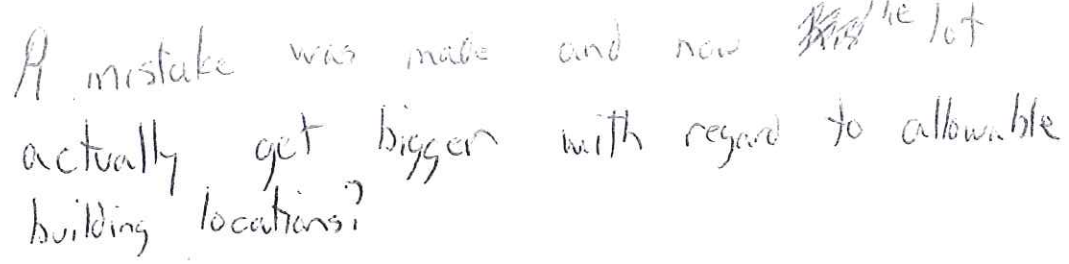 A mistake was made and now the lot
actually get bigger with regard to allowable
building locations?